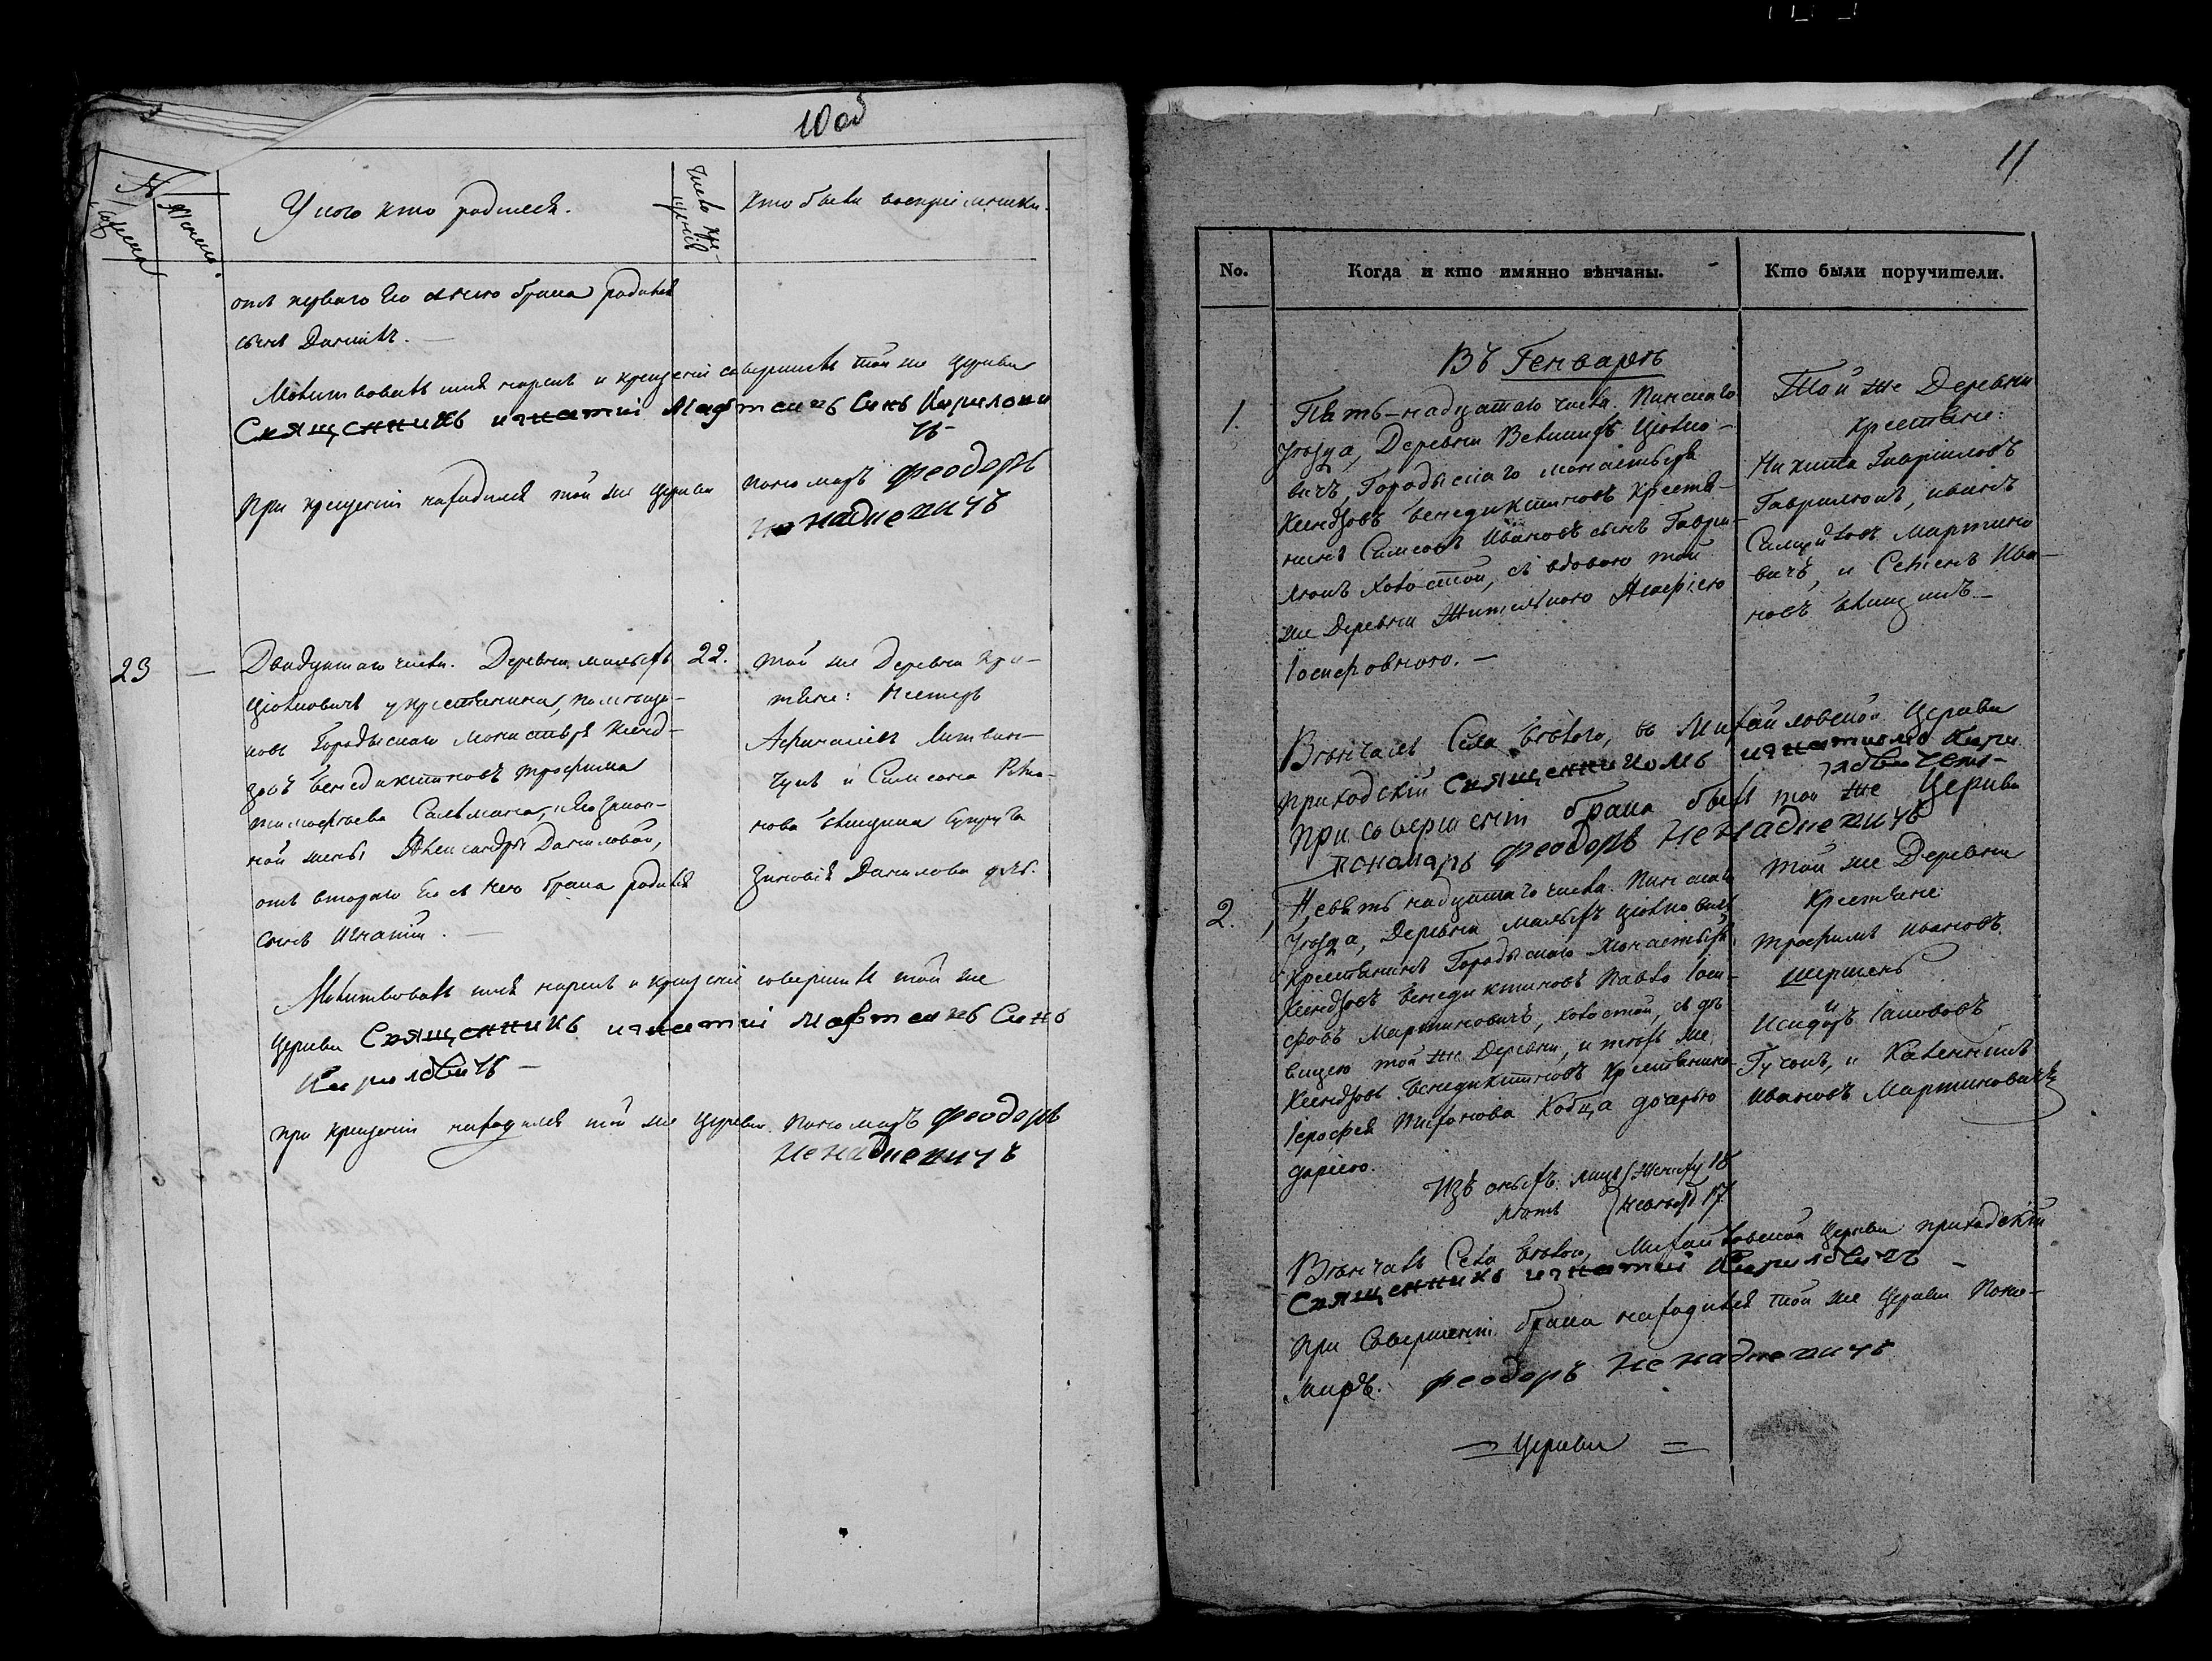 10 об
№
Мужеска
Женска.
У кого кто родился.
Число кре-
щенія
Кто были воспріемники.
отъ перваго его съ нею брака родился
сынъ Даніилъ. —
Молитвовалъ имя нарекъ и крещеніе совершилъ той же Церкви
Священникъ игнатій Синъ Кирилови
чъ
При крещеніи находился той же Церкви пономаръ феодоръ
Ненадкевичъ
23 — Двадцатаго числа. Деревни малыхъ 22.
Ціолковичъ у крестьянина, помѣщи-
ковъ Городыскаго монастыря Ксенд-
зовъ бенедиктиновъ трофима
тимофѣева Сальмана, и его закон-
ной жены Александры Даниловой,
отъ втораго его съ нею брака родился
сынъ Игнатій. —
той же Деревни кре-
тяне: Нестеръ
Афанасіевъ Литвин-
чукъ и Симеона
нова супруга
Зиновія Данилова дчь.
Молитвовалъ имя нарекъ и крещеніе совершилъ той же
Церкви Священникъ игнатій Синъ
Кириловичъ —
при крещеніи находился той же Церкви пономаръ феодоръ
Ненадкевичъ
11
No. Когда и кто имянно вѣнчаны. Кто были поручители.
Въ Генварѣ
1. Пять-надцатаго числа. Пинскаго
уѣзда, Деревни Великихъ Ціолко-
вичъ, Городыскаго монастыря
Ксендзовъ бенедиктиновъ крестья-
нинъ Симеонъ Ивановъ сынъ Гаври-
люкъ холостой, съ вдовою той
же Деревни Жителькою Агафіею
Іосифовною. —
Той же Деревни
крестьяне:
Никита Гавриловъ
Гаврилюкъ, иванъ
Мартино
вичъ, и Ива-
новъ —
Вѣнчалъ, Села во Михайловской Церкви
приходскій Священникомъ игнатіемъ Кири
ловичемъ
При совершеніи брака былъ той же Церкви
понамаръ феодоръ Ненадкевичъ
2. Девять надцатаго числа. Пинскаго
уѣзда, Деревни малыхъ Ціолковичъ
Крестьянинъ Городыскаго монастыря
Ксендзовъ бенедиктиновъ Павло Іоси-
фовъ Мартиновичъ, холостой, съ дѣ
вицею той же Деревни, и тѣхъ же
Ксендзовъ бенедиктиновъ крестьянина
Іерофея Тихонова Кобца дочерью
даріею.
Изъ оныхъ лицъ (Жениху 18
лѣтъ (Невѣстѣ 17
той же Деревни
Крестьяне:
трофимъ ивановъ
шершень
и
Исидоръ
и
ивановъ Мартиновичъ
Вѣнчалъ Села Михайловской Церкви приходскій
Священникъ игнатій Кириловичъ —
При Совершеніи брака находился той же Церкви Поно-
маръ. феодоръ Ненадкевичъ
— Церкви =